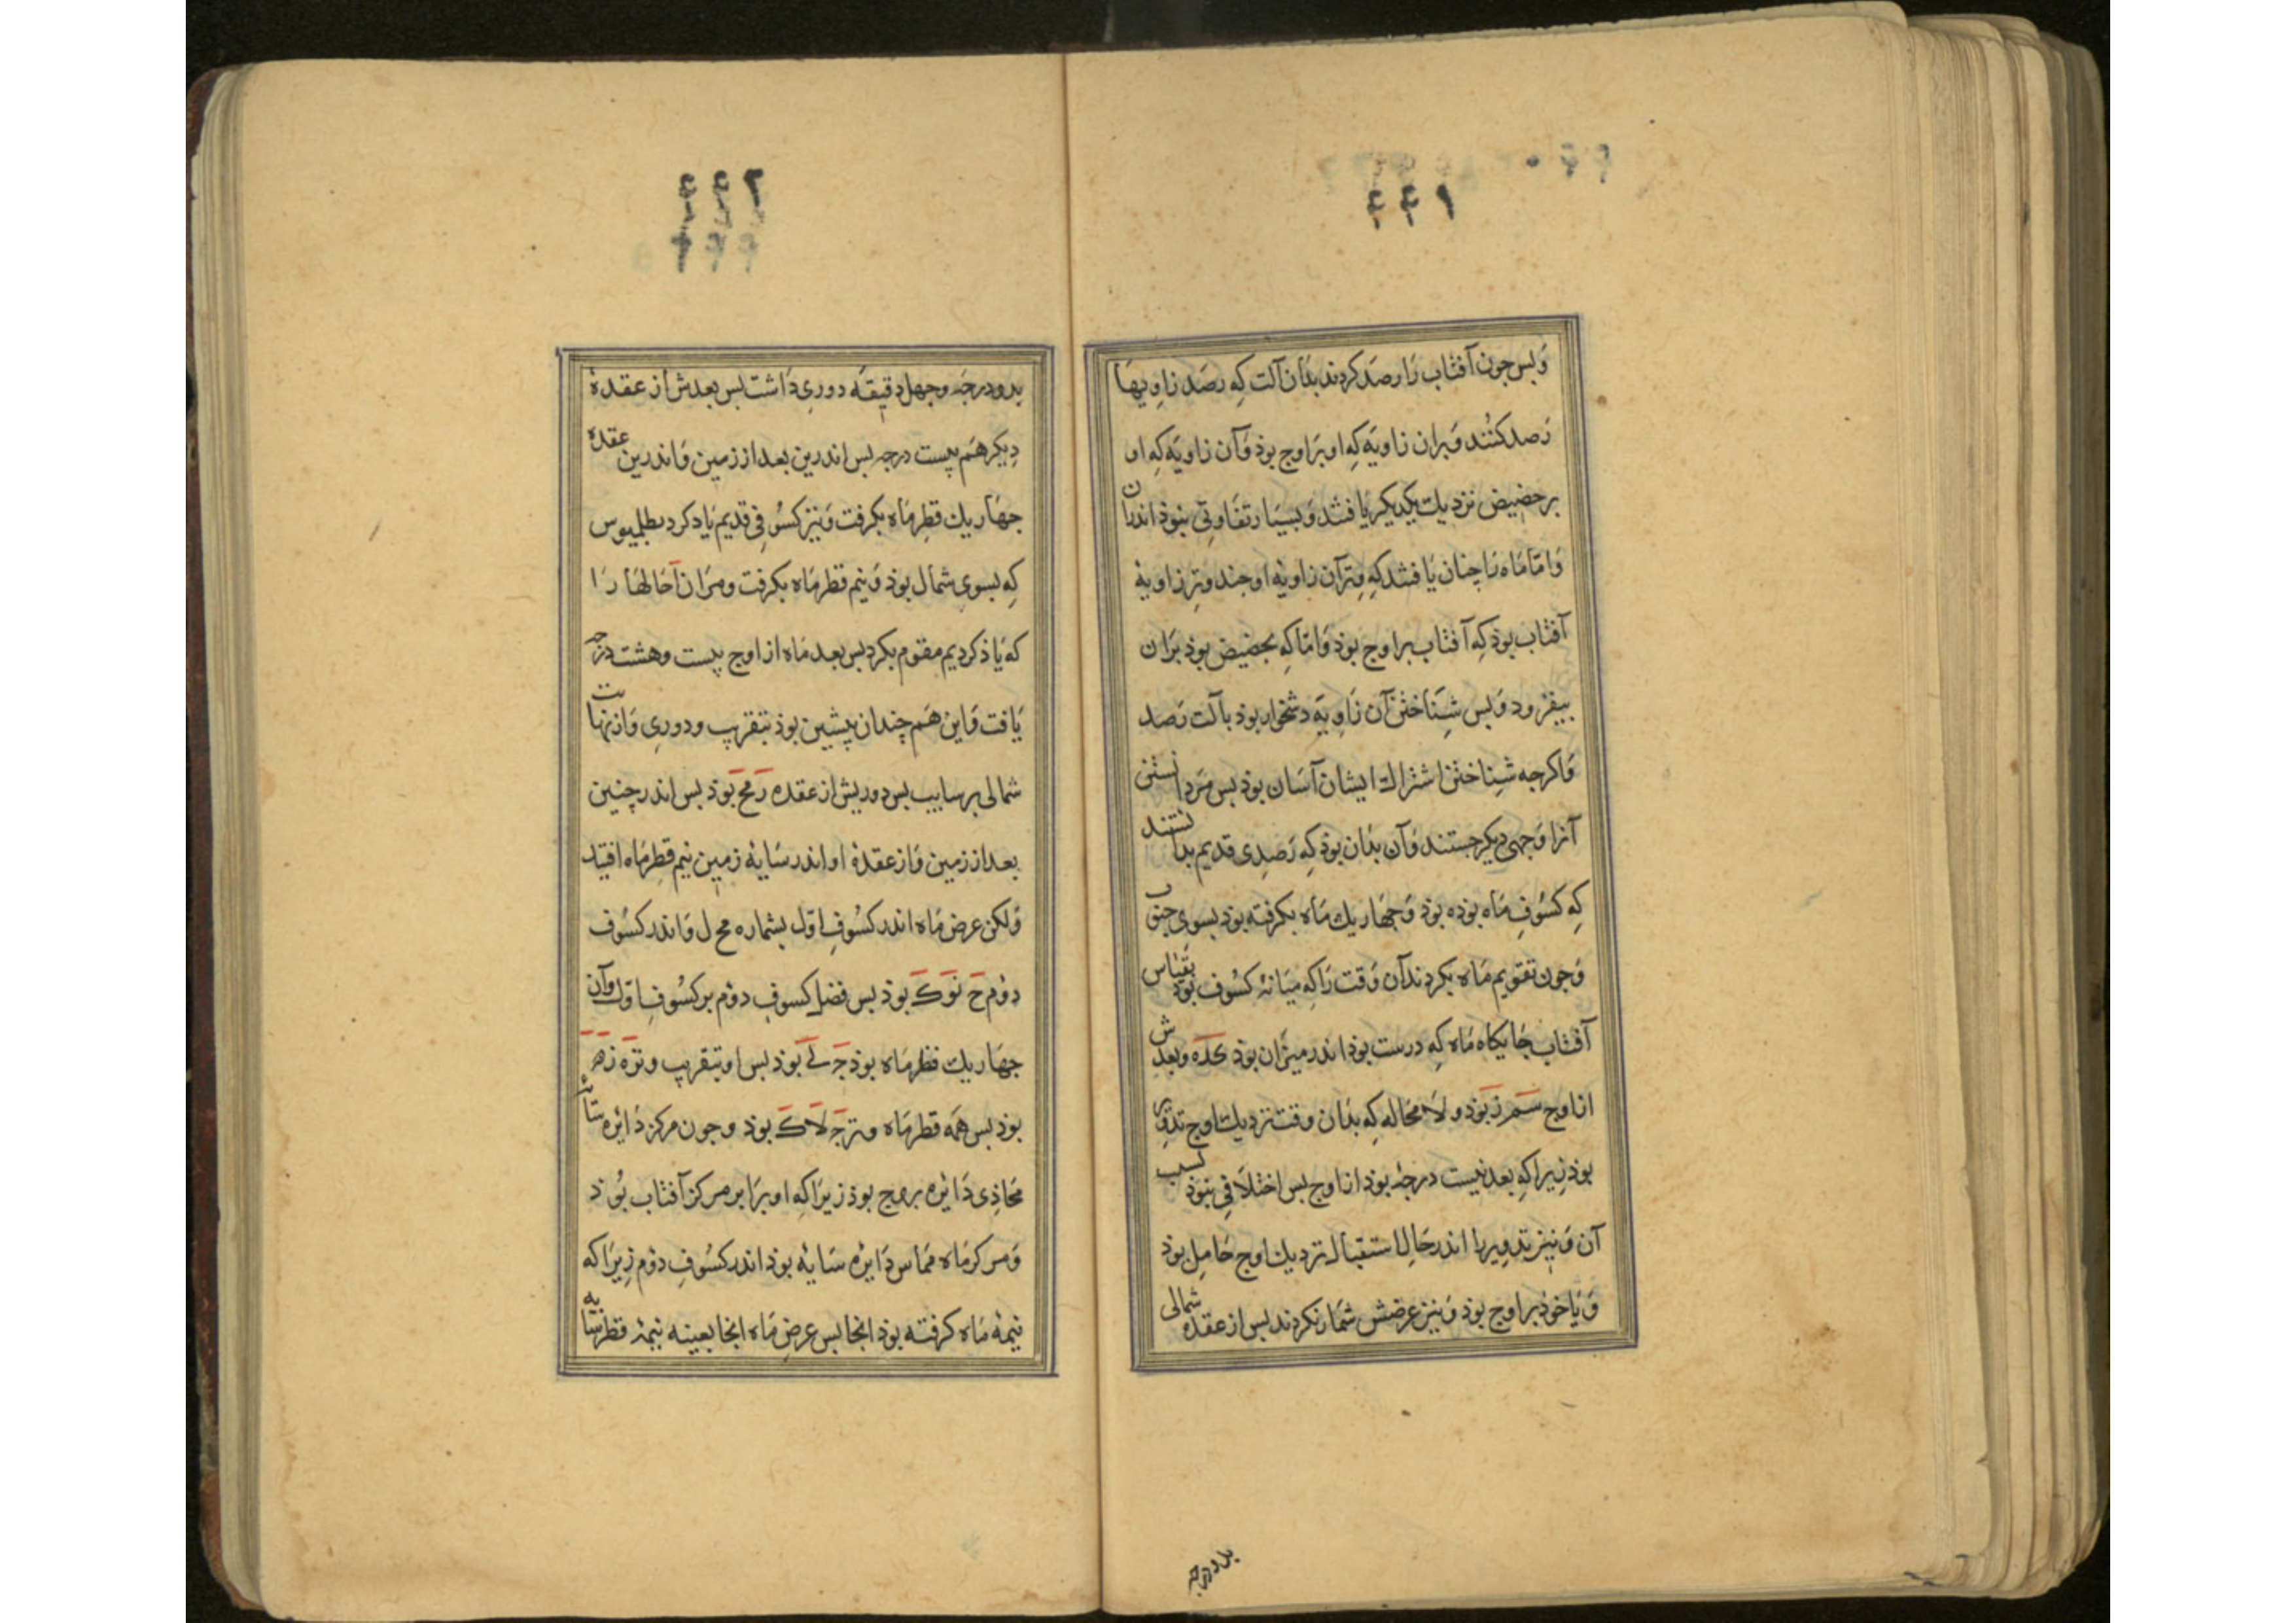 ۴۴۱
وَبس جون آفتاب رَا رصَد کردند بذان آلت کِه رصَد زاویهَا
رَصد کنُند وَبران زاویَه کِه او بَر اوج بوذ وَآن زاویَه کِه او
بر حضیض نزدیك یکدیکر یَافتند وَبسیَار تفَاوتی نبوذ اندران
وَامّا مَاه رَا چنان یَافتند کِه وترِ آن زاویهٔ او جند وترِ زاویهٔ
آفتاب بوذ کِه آفتاب بر اوج بوذ وَامّا کِه بحضیض بوذ برَان
بیفزود وَبس شِنَاختن آن زَاویَه دشخوار بوذ بآلت رَصد
وَاکرجه شِناختن اشتراك ایشان آسَان بوذ بس مَردانستن
آنرا وَجهی دیکر جستند وَآن بذان بوذ کِه رَصدِی قدیم بدانستند
کِه کسُوفِ مَاه بوذه بوذ وَجهَار یك مَاه بکرفته بوذ بسوی جنوب
وَجون تقویم مَاه بکردند آن وَقت رَا کِه میَانهٔ کسُوف بوذ بقیاس
آفتاب جَایکاه مَاه کِه درست بوذ اندر میزان بوذ کَدَه وبعدش
از اوج سَم زَ بوذ ولَا محَاله کِه بذان وقت نزدیك اوج تدویر
بوذ زیرا کِه بعد بیست درجهٔ بوذ از اوج بس اختلَافی نبوذ کسب
آن وَنیز تدویرها اندر حَالِ استقبال نزدیك اوج حَامِل بوذ
وَیَا خوذ بر اوج بوذ وَنیز عرضش شمَار نکردند بس از عقده شمالی
بدو درجه
۴۴۲
بدو درجَه وجهل دقیقَه دوری دَاشت بس بعدش از عقدهٔ
دِیکر هَم بیست درجه بس اندرین بعد از زمین وَاندرین عقده
جهَار یك قطرِ مَاه بکرفت وَنیز کسُوفی قدیم یَاد کرد بطلمیوس
کِه بسوی شمال بوذ وَنیم قطر مَاه بکرفت ومرَان حَالهَا رَا
که یَاذ کردیم مقوم بکرد بس بعد مَاه از اوج بیست وهشت درجه
یَافت وَاین هَم چندان بیشین بوذ بتقریب ودوری وَاز نهایت
شمالی بر سابیب بس دوریش از عقده رَ مَح بوذ بس اندر چنین
بعد از زمین وَاز عقدهٔ او اندر سَایهٔ زمین نیم قطرِ مَاه افتد
وَلکن عرض مَاه اندر کسُوفِ اوّل بشماره مح ل وَاندر کسُوف
دوُم حَ نَو کَ بوذ بس فضل کسوف دوُم بر کسُوف اوّل وآن
جهَار یك قطر مَاه بوذ جَ لَے بوذ بس او بتقریب وتر ه زه
بوذ بس همَه قطر مَاه وتر جَ لَا کَ بوذ وجون مرکز دَایره سَایهٔ
محَاذِی دَایره بروج بوذ زیرَا کِه او برَابر مرکز آفتاب بُوَد
وَمرکز مَاه ممَاس دَایره سَایهٔ بوذ اندر کسُوفِ دوُم زِیرَا که
نیمهٔ مَاه کرفته بوذ انجا بس عرض مَاه انجا بعینه نیمهٔ قطر سَایه